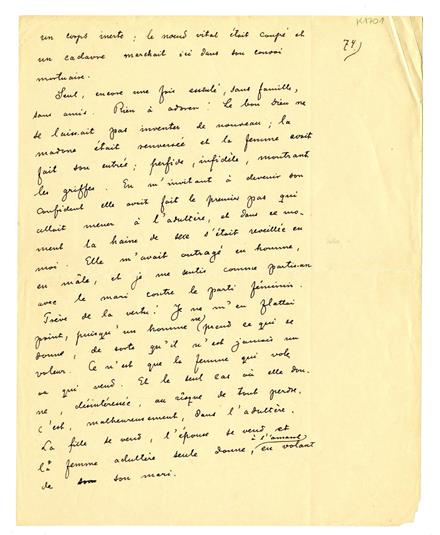 K1701
74)
un corps inerte; le nœud vital était coupé et
un cadavre marchait ici dans son convoi
mortuaire.
Seul, encore une fois esseulé, sans famille,
sans amis. Rien à adorer! Le bon dieu ne
se laissait pas inventer de nouveau; la
madone était renversée et la femme avait
fait son entrée; perfide, infidèle, montrant
les griffes. En m'invitant à devenir son
confident elle avait fait le premier pas qui
allait mener à l'adultère, et dans ce mo-
ment la haine de sexe s'était reveillée en
moi. Elle m'avait outragé en homme,
en mâle, et je me sentis comme partisan
avec le mari contre le parti féminin.
Trève de la vertu! Je ne m'en flattai
point, puisqu'un homme ne prend ce qui se
donne, de sorte qu'il n'est jamais un
voleur. Ce n'est que la femme qui vole
ou qui vend. Et le seul cas où elle don-
ne, désintéressée, au risque de tout perdre,
c'est, malheureusement, dans l'adultère.
La fille se vend, l'épouse se vend et
la femme adultère seule donne, à l'amant en volant
de son mari.